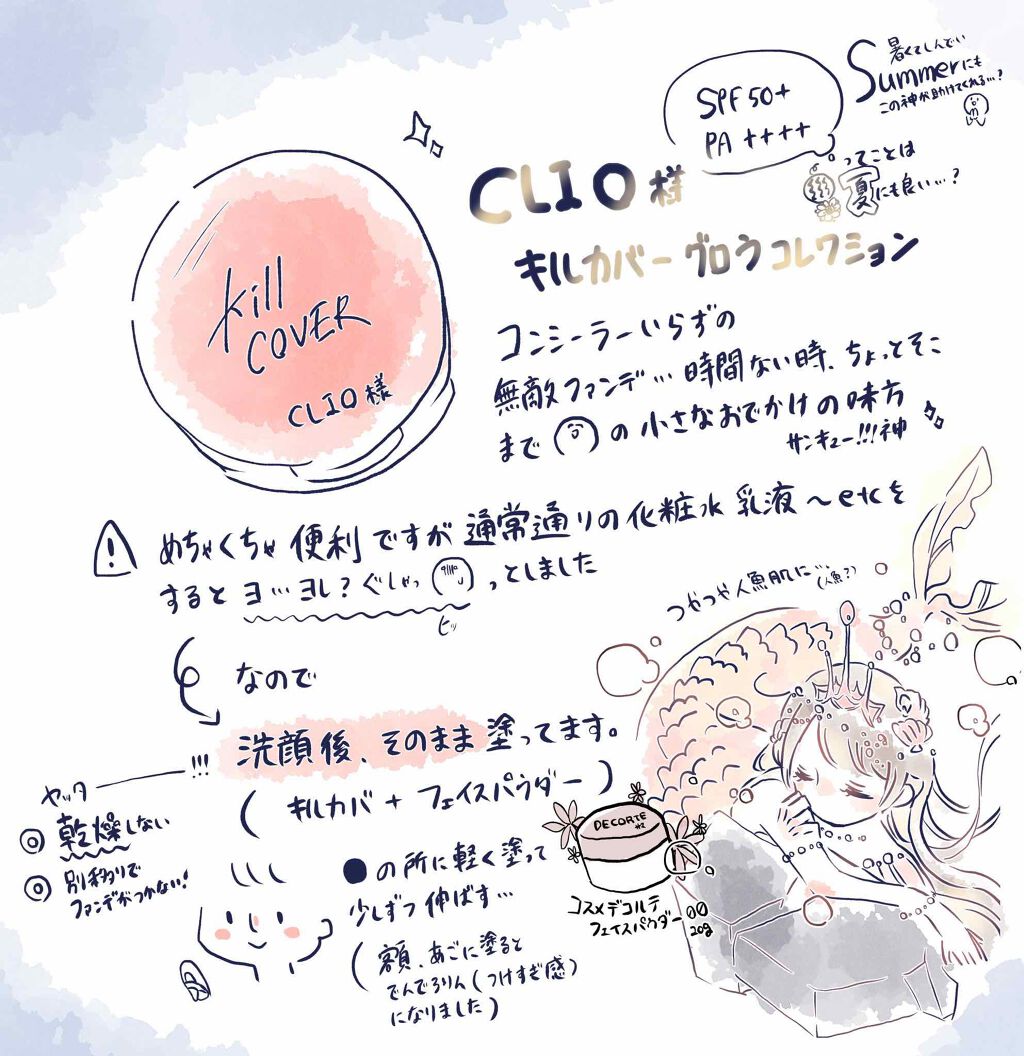 暑くてしんでい
Summerにも
この神が助けてくれる…?
SPF50+
PA ++++
ってことは
夏にも良い…?
CLIO様
キルカバー グロウ コレクション
Kill
COVER
CLIO様
コンシーラーいらずの
無敵ファンデ… 時間ない時、ちょっとそこ
まで の 小さなおでかけの味方
サンキュー!!!神
! めちゃくちゃ 便利 ですが 通常通りの 化粧水 乳液 〜 etcを
すると ヨ…ヨレ? ぐしゃっ っとしました
ヒッ
つやつや人魚肌に…
(人魚?)
なので
!!! 洗顔後、そのまま 塗ってます。
( キルカバ + フェイスパウダー )
ヤッター
◎ 乾燥しない
◎ 別移りで
ファンデがつかない!
●の所に軽く塗って
少しずつ 伸ばす…
( 額、あごに塗ると
でんでろりん(つけすぎ感)
になりました )
DECORTE
コスメデコルテ
フェイスパウダー 00
20g